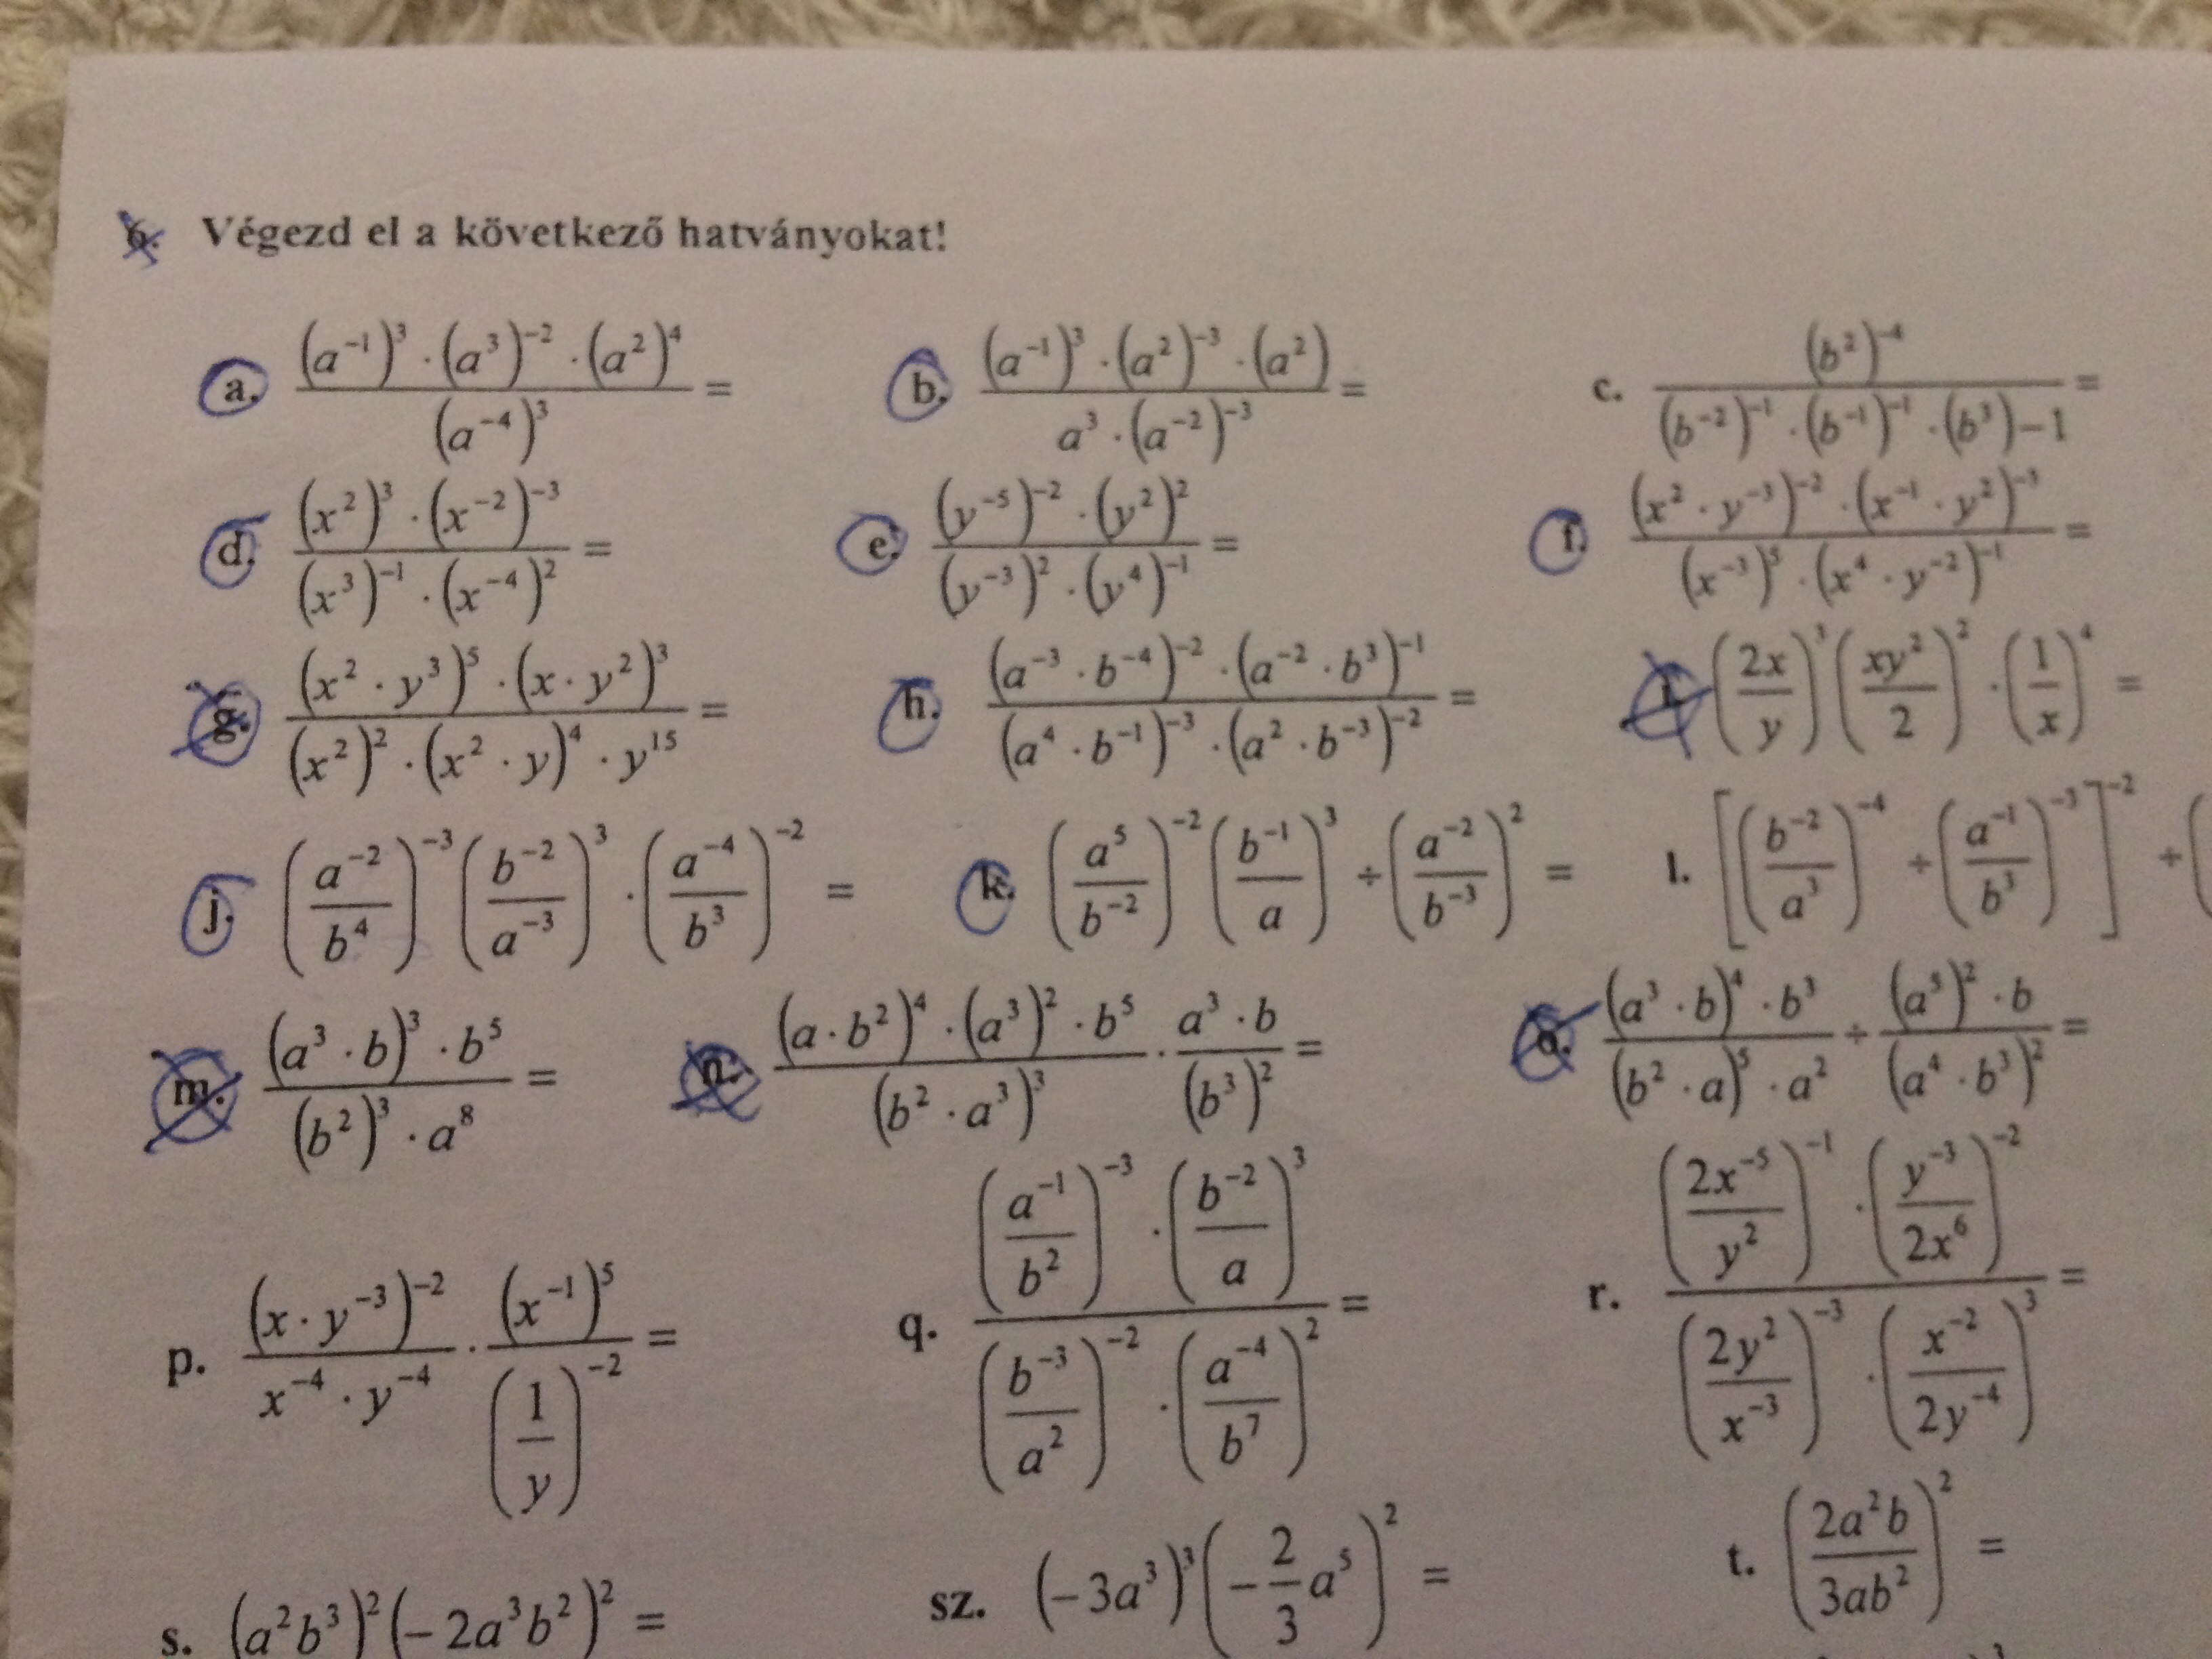 6. Végezd el a következő hatványokat!
a. \frac{(a^{-1})^3 \cdot (a^3)^{-2} \cdot (a^2)^4}{(a^{-4})^3} =
b. \frac{(a^{-1})^3 \cdot (a^2)^{-3} \cdot (a^2)}{a^3 \cdot (a^{-2})^{-3}} =
c. \frac{(b^2)^{-4}}{(b^{-2})^{-1} \cdot (b^{-1})^{-1} \cdot (b^3)-1} =
d. \frac{(x^2)^3 \cdot (x^{-2})^{-3}}{(x^3)^{-1} \cdot (x^{-4})^2} =
e. \frac{(y^{-5})^{-2} \cdot (y^2)^2}{(y^{-3})^2 \cdot (y^4)^{-1}} =
f. \frac{(x^2 \cdot y^{-3})^{-2} \cdot (x^{-1} \cdot y^2)^{-3}}{(x^{-3})^5 \cdot (x^4 \cdot y^{-2})^{-1}} =
g. \frac{(x^2 \cdot y^3)^5 \cdot (x \cdot y^2)^3}{(x^2)^2 \cdot (x^2 \cdot y)^4 \cdot y^{15}} =
h. \frac{(a^{-3} \cdot b^{-4})^{-2} \cdot (a^{-2} \cdot b^3)^{-1}}{(a^4 \cdot b^{-1})^{-3} \cdot (a^2 \cdot b^{-3})^{-2}} =
i. (\frac{2x}{y})^3 (\frac{xy^2}{2})^2 \cdot (\frac{1}{x})^4 =
j. (\frac{a^{-2}}{b^4})^{-3} (\frac{b^{-2}}{a^{-3}})^3 \cdot (\frac{a^{-4}}{b^3})^{-2} =
k. (\frac{a^5}{b^{-2}})^{-2} (\frac{b^{-1}}{a})^3 ÷ (\frac{a^{-2}}{b^{-3}})^2 =
l. [(\frac{b^{-2}}{a^3})^{-4} ÷ (\frac{a^{-1}}{b^3})^{-3}]^{-2} ÷ (
m. \frac{(a^3 \cdot b)^3 \cdot b^5}{(b^2)^3 \cdot a^8} =
n. \frac{(a \cdot b^2)^4 \cdot (a^3)^2 \cdot b^5}{(b^2 \cdot a^3)^3} \cdot \frac{a^3 \cdot b}{(b^3)^2} =
o. \frac{(a^3 \cdot b)^4 \cdot b^3}{(b^2 \cdot a)^5 \cdot a^2} ÷ \frac{(a^5)^2 \cdot b}{(a^4 \cdot b^3)^2} =
p. \frac{(x \cdot y^{-3})^{-2}}{x^{-4} \cdot y^{-4}} \cdot \frac{(x^{-1})^5}{(\frac{1}{y})^{-2}} =
q. \frac{(\frac{a^{-1}}{b^2})^{-3} \cdot (\frac{b^{-2}}{a})^3}{(\frac{b^{-3}}{a^2})^{-2} \cdot (\frac{a^{-4}}{b^7})^2} =
r. \frac{(\frac{2x^{-5}}{y^2})^{-1} \cdot (\frac{y^{-3}}{2x^6})^{-2}}{(\frac{2y^2}{x^{-3}})^{-3} \cdot (\frac{x^{-2}}{2y^{-4}})^3} =
s. (a^2b^3)^2 (-2a^3b^2)^2 =
sz. (-3a^3)^3 (-\frac{2}{3}a^5)^2 =
t. (\frac{2a^2b}{3ab^2})^2 =